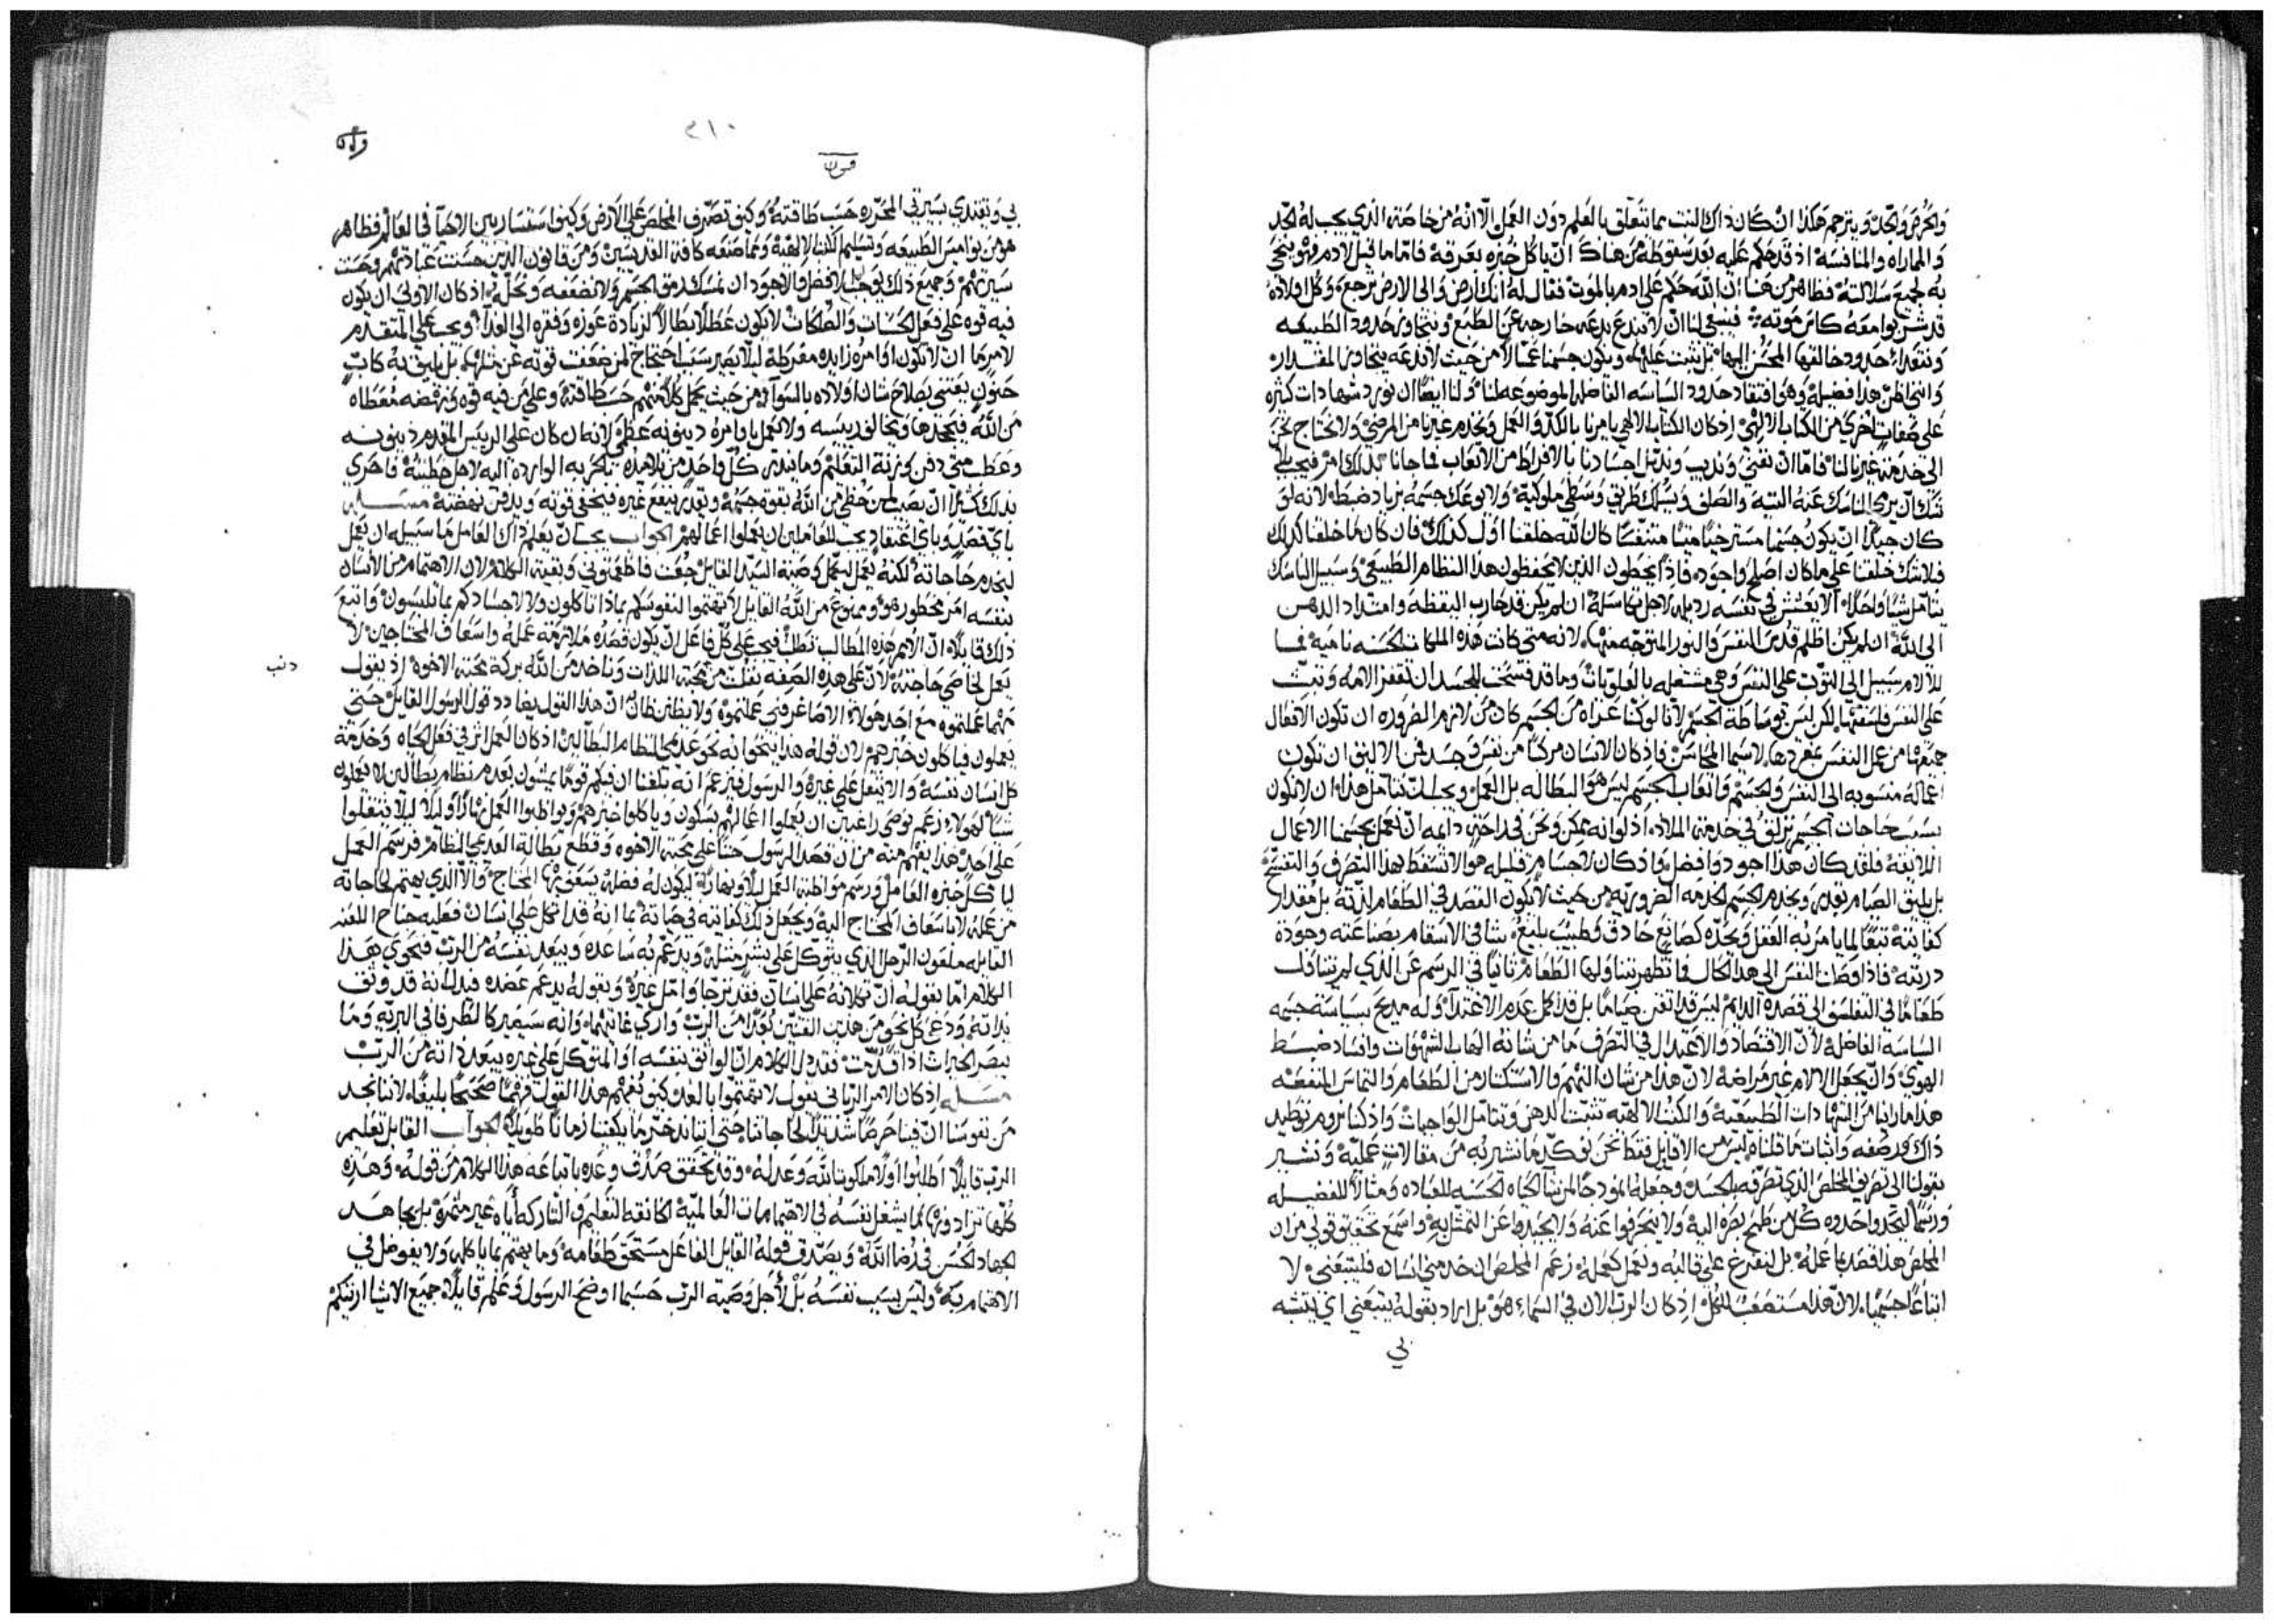 والحرص والحد ويترجم هكذا ان كان ذاك النت مما تتعلق بالعلم دون العمل الا انه من خاصته الذي يجب له الحد
والمماراه والمنافسه اذ قد حكم عليه بعد سقوطه من هناك ان ياكل خبزه بعرقه فاما ما قيل لادم فهو يتجي
به لجميع سلالته فظاهر من هنا ان الله حكم على ادم بالموت فقال له انك ارض والى الارض ترجع وكل اولاده
قد شربوا معه كاس موته فينبغي لنا ان لا نبتدع بدعه خارجه عن الطبع ونتجاوز حدود الطبيعه
ونتعدا حدود خالقها المحسن اليها بل نثبت عليها ويكون جسمنا عمالا من حيث لا ندعه يتجاوز المقدار
وانتي اظن هذا فضيله وهو افتقاد حدود السياسه الفاضله الموضوعه لنا ولنا ايضا ان نورد شهادات كثيره
على صفات اخرى من الكتاب الالهي اذ كان الكتاب الالهي يامرنا بالكد والعمل ونخدم غيرنا من المرضى ولا نحتاج نحن
الى خدمة غيرنا لنا فاما ان نفني ونذيب ونذبل اجسادنا بالافراط من الاتعاب فما جانا بذلك امر فيجب بلا
شك ان يرى الناسك عنه التيه والصلف ويسلك طريق وسطى ملوكية ولا يوعك جسمه بزياد ضبطه لانه لو
كان جيدا ان يكون جسمنا مسترخيا ميتا متنفسا كان الله خلقنا اول كذلك فان كان ما خلقنا كذلك
فلا شك خلقنا على ما كان اصلح واجود فاذا يخطون الذين لا يحفظون هذا النظام الطبيعي وسبيل الناسك
يتامل شيا واحدا الا يعشش في نفسه رذيله لاجل تكاسله ان لم يكن قد حارب اليقظه وامتداد الذهن
الى الله ان لم يكن اظلم قدس النفس والنور المتوجه منها لانه متى كانت هذه الملكات الحسنه ناميه فما
للالام سبيل الى التوثب على النفس وهي مشتغله بالعلويات وما قد فسحت للجسد ان تقفز الامه وتبث
على النفس فلسفتها لكن ليس بوساطة الجسم لاننا لو كنا عراه من الجسم كان من لازم الضروره ان تكون الافعال
جميعها من عمل النفس بمفردها لا سيما المحاسن فاذ كان الانسان مركبا من نفس وجسد فمن الاليق ان تكون
اعماله منسوبه الى النفس والجسم واتعاب الجسم ليس هو البطاله بل العمل ويجب ان نتامل هذا ان لا تكون
بسبب حاجات الجسم نزلق في خدمة الملاذ اذ لو انه يمكن ونحن في راحة دائمه ان نعمل بجسمنا الاعمال
اللايقه فلقد كان هذا اجود وافضل واذ كان الاجسام قليله هو الا تسقط بهذا التصرف والتفسح
بل يليق الصيام بقدر ويخدم الجسم الخدمه الضروريه من حيث لا يكون القصد في الطعام لذته بل مقدار
كفايته تبعا لما يامر به العقل ويحده كصانع حاذق وطبيب بليغ شافي الاسقام بصناعته وجودة
دربته فاذا وصلت النفس الى هذا الكمال فما تظهر بتناولها الطعام ثانيا في الرسم عن الذي لم يتناول
طعاما في التفلسف الى قصده الدايم ليس قد اتقن صياما بل قد اكمل عدم الاغتدا وله مديح بسياسة جسمه
السياسه الفاضله لان الاقتصاد والاعتدال في التصرف ما من شانه الهاب الشهوات وافساد ضبط
الهوى وان يجعل الالام غير مراضه لان هذا من شان النهم والاستكثار من الطعام والتماس المنفعه
هذا ما راينا من الشهادات الطبيعية والكتب الالهيه تثبت الذهن وتتامل الواجبات واذ كنا نروم توطيد
ذاك ورصفه واثبات ما قلناه ليس من الاقاويل فقط نحن نوكد ما نشير به من مقالات عمليه ونشير
بقولنا الى تصريف المخلص الذي تصرفه بالجسد وجعله انموذجا لمن يشا الحياه الحسنه للعباده ومثالا للفضيله
ورسما ليتخذوا حدوه كل من طمح بصره اليه ولا ينحرفوا عنه ولا يحيدوا عن التمثل به واسمع تحقيق قولي من ان
المخلص هذا قصد بما عمله بل لنفرغ على قالبه ونعمل كعمله زعم المخلص ان خدمني انسان فليتبعني لا
اتباعا جسميا لان هذا مستصعب للكل اذ كان الرب الان في السماء هو بل اراد بقوله يتبعني اي يتشبه
بي
٢١٠
بي ويقتدي بسيرتي المحرره حسب طاقته وكيف تصرف المخلص على الارض وكيف استسار بين الاحيا في العالم فظاهر
هو من نواميس الطبيعه وتسليم الكتب الالهية ومما صنعه كافة القديسين ومن قانون الذين حسنت عبادتهم وحسنت
سيرتهم وجميع ذلك يوجب الافضل والاجود ان نمسك رمق الجسم ولا نضعفه ونحله اذ كان الاولى ان يكون
فيه قوه على فعل الحسنات والملكات لا يكون عطلا بطالا لزيادة عوزه وفقره الى الغدا ويجب على المتقدم
لامر ما ان لا تكون اوامره زايده مفرطه ليلا يصير سبب احتجاج لمن ضعفت قوته عن مثلها بل يليق به كاب
حنون يعتني بصلاح شان اولاده بالسوا من حيث يحمل كلا منهم حسب طاقته وعلى من فيه قوه ونهضه معطاه
من الله فيجحدها ويخالف رييسه ولا يعمل باوامره دينونه عظمى لانه ان كان على الرييس المقدم دينونه
وعطب متى دفن وزنة التعلم وما ينذر كل واحد من تلامذه بالحربه الوارده اليه لاجل خطيته فاحرى
بذلك كثيرا ان يصيب لمن حظي من الله بقوة جسمه ويقدر ينفع غيره فيخفي قوته ويدفن نهضته مسله
باي قصد وباي اعتقاد يجب للعاملين ان يعملوا اعمالهم الجواب يجب ان يعلم ذاك العامل ما سبيله ان يعمل
ليخدم حاجاته لكنه يعمل ليكمل وصية السيد القايل جعت فاطعمتوني وبقية الكلام لان الاهتمام من الانسان
بنفسه امر محظور هو وممنوع من الله القايل لا تهتموا لنفوسكم بماذا تاكلون ولا لاجسادكم بما تلبسون واتبع
ذلك قايلا ان الامم هذه المطالب تطلب فيجب على كل فاعل ان يكون قصده ملازمة عمله واسعاف المحتاجين لا
يعمل لخاصي حاجته لان على هذه الصفه نفلت من محبة اللذات وناخذ من الله بركة محبة الاخوه اذ يقول
مهما عملتموه مع احد هولاء الاصاغر فبي عملتموه ولا يظنن ظان ان هذا القول يضادد قول الرسول القايل حتى
يعملون فياكلون خبزهم لان قوله هذا ينحوا به نحو عديمي النظام البطالين اذ كان العمل اثر في فعل الحياه وخدمة
كل انسان نفسه والا يثقل على غيره والرسول فيزعم انه بلغنا ان فيكم قوما يمشون بعدم نظام بطالين لا يعملون
شيا لهولاء زعم نوصي راغبين ان يعملوا اعمالهم بسكون وياكلوا خبزهم ويواظبوا العمل نهارا وليلا ليلا يثقلوا
على احد هذا يفهم منه من ان قصد الرسول حثنا على محبة الاخوه وقطع بطالة العديمي النظام فرسم العمل
لياكل خبزه العامل ورسم مواظبة العمل ليلا ونهارا ليكون له فضله يسعف بها المحتاج والا الذي يهتم لحاجاته
من عمله لا باسعاف المحتاج اليه ويجعل ذلك كفايته في حياته بما انه قد اتكل على انسان فعليه جناح اللعنه
القايله ملعون الرجل الذي يتوكل على بشر مثله ويدعم به ساعده ويبعد نفسه من الرب فنحوي هذا
الكلام اما بقوله ان تكلانه على انسان فقد ترجا وامل غيره وبقوله يدعم عضده فبدلالة قد وثق
بذاته ودعي كل نحو من هذين الفنين بعدا من الرب واركي غايتهما وانه سيصير كالطرفا في البريه وما
يبصر الخيرات اذا قدمت فقد دل الكلام ان الواثق بنفسه او المتوكل على غيره يبعد ذاته من الرب
مسله اذ كان الامر الرباني يقول لا تهتموا بالغد كيف نفهم هذا القول فهما صحيحا بليغا لاننا نجد
من نفوسنا ان فينا حرصا شديدا لحاجاتنا حتى اننا ندخر ما يكفينا زمانا طويلا الجواب القابل تعليم
الرب قايلا اطلبوا اولا ملكوت الله وعدله وقد تحقق صدق وعده باتباعه هذا الكلام من قوله وهذه
كلها تزادونها فما يشغل نفسه في الاهتمامات العالمية اذا نقط التعليم والتاركه اياه غير مثمرة بل يجاهد
الجهاد الحسن في رضا الله ويصدق قوله القايل الفاعل مستحق طعامه وما يهتم بما ياكل ولا يفوض في
الاهتمام به وليس بسبب نفسه بل لاجل وصية الرب حسبما اوضح الرسول وعلم قايلا جميع الاشيا اريتكم